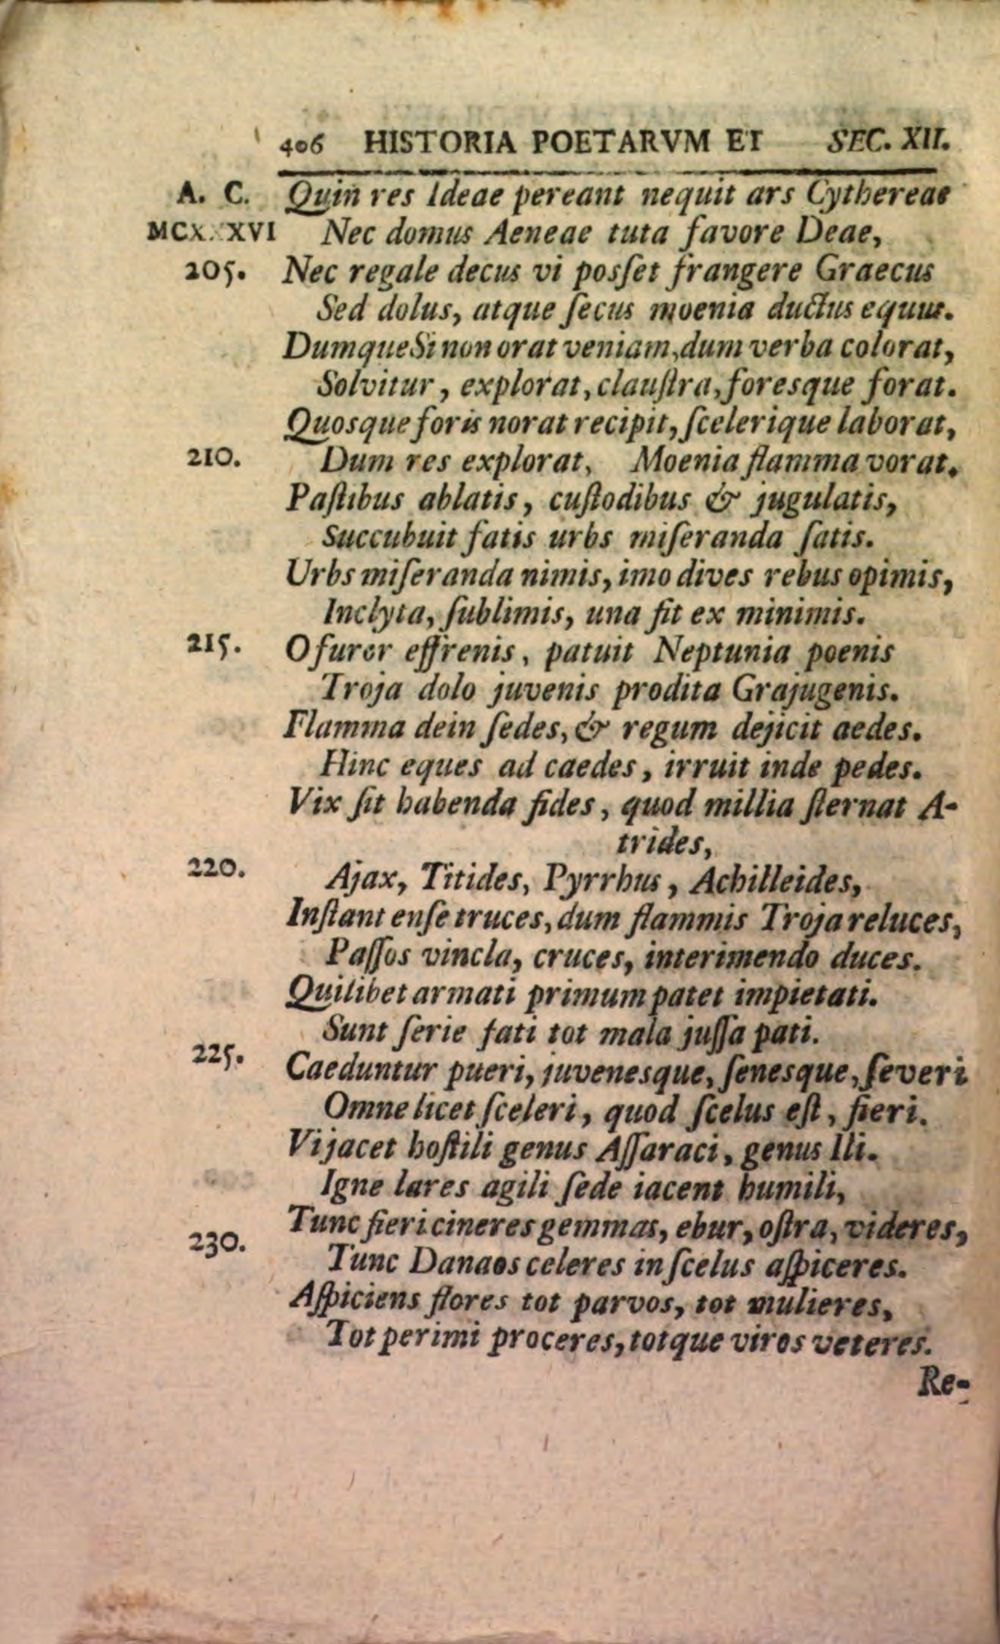 406 HISTORIA POETARVM ET SEC. XII.
A. C. Quin res Ideae pereant nequit ars Cythereae
MCX XXVI Nec domus Aeneae tuta favore Deae,
205. Nec regale decus vi poſſet frangere Graecus
Sed dolus, atque ſecus moenia ductus equus.
Dumque Sinon orat veniam, dum verba colorat,
Solvitur, explorat, clauſtra, foresque forat.
Quosque foris norat recipit, ſcelerique laborat,
210. Dum res explorat, Moenia flamma vorat.
Paſtibus ablatis, cuſtodibus & jugulatis,
Succubuit fatis urbs miſeranda ſatis.
Urbs miſeranda nimis, imo dives rebus opimis,
Inclyta, ſublimis, una fit ex minimis.
215. O furor effrenis, patuit Neptunia poenis
Troja dolo juvenis prodita Grajugenis.
Flamma dein ſedes, & regum dejicit aedes.
Hinc eques ad caedes, irruit inde pedes.
Vix ſit habenda fides, quod millia ſternat A-
trides,
220. Ajax, Titides, Pyrrhus, Achilleides,
Inſtant enſe truces, dum flammis Troja reluces,
Paſſos vincla, cruces, interimendo duces.
Quilibet armati primum patet impietati.
Sunt ſerie fati tot mala juſſa pati.
225. Caeduntur pueri, juvenesque, ſenesque, ſeveri
Omne licet ſceleri, quod ſcelus eſt, fieri.
Vi jacet hoſtili genus Aſſaraci, genus Ili.
Igne lares agili ſede iacent humili,
Tunc fieri cineres gemmas, ebur, oſtra, videres,
230. Tunc Danaos celeres in ſcelus aſpiceres.
Aſpiciens flores tot parvos, tot mulieres,
Tot perimi proceres, totque viros veteres.
Re-